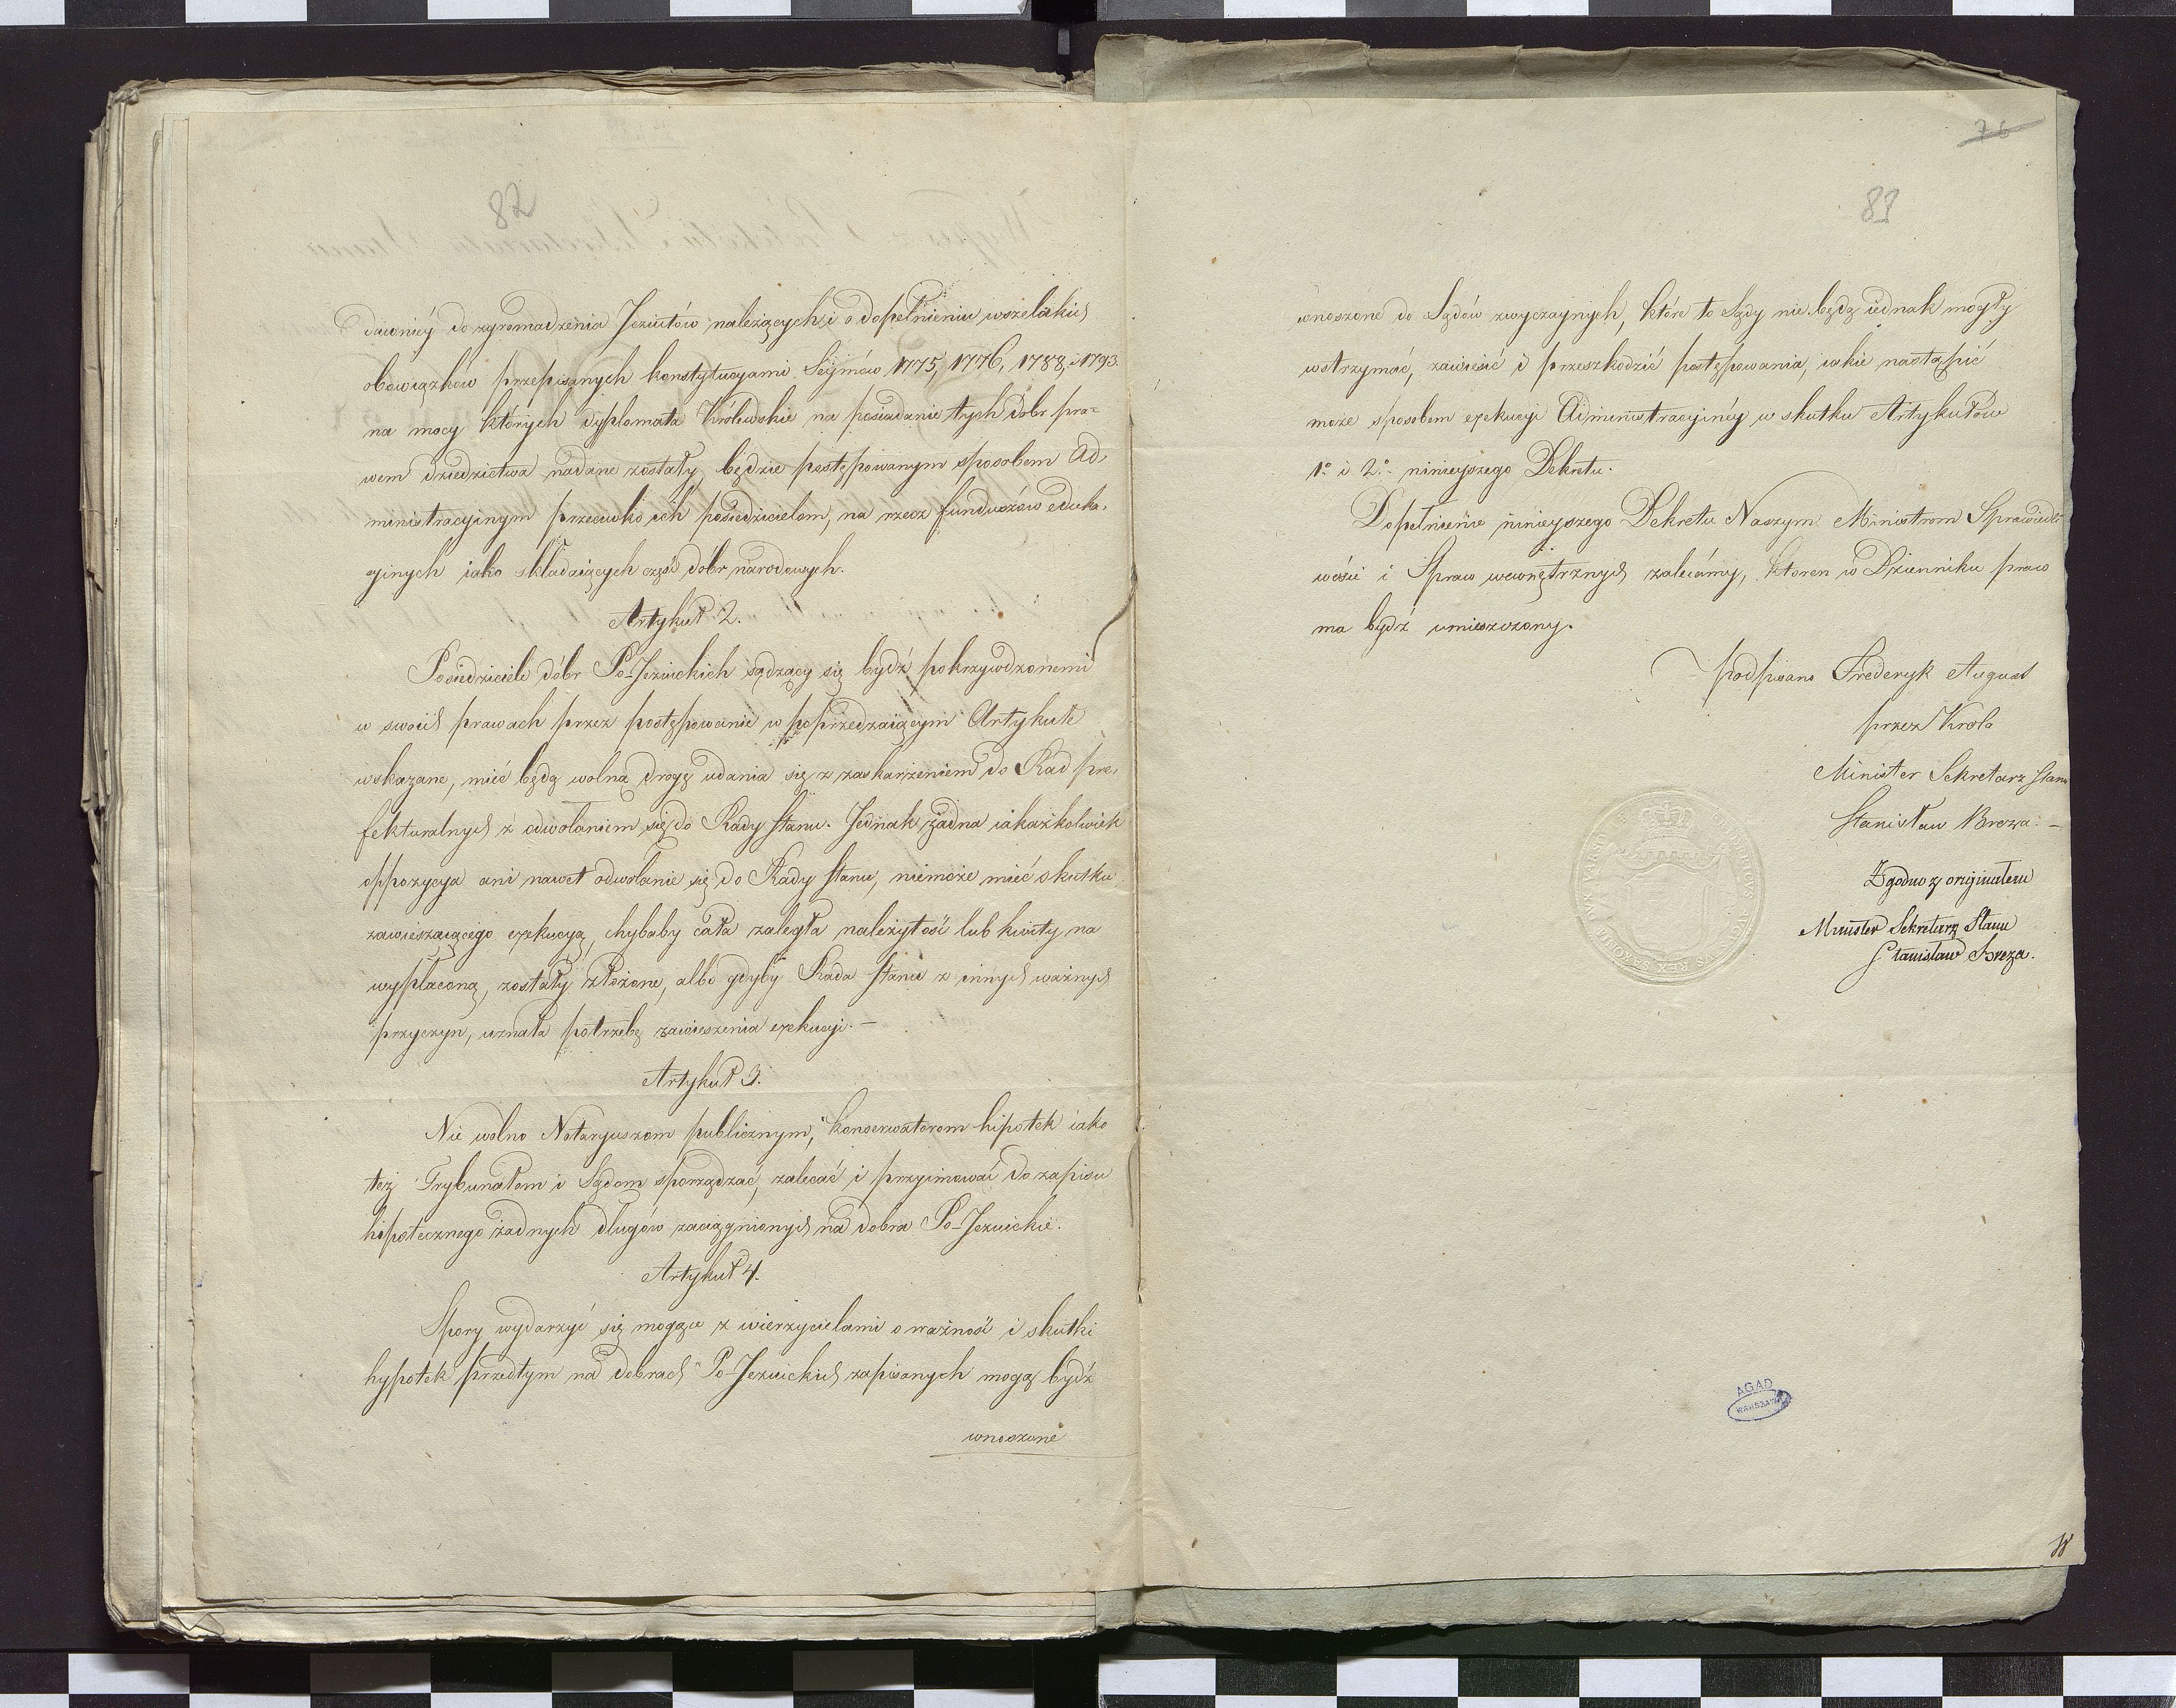 82
dawniéy do zgromadzenia Jezuitów należących, i o dopełnieniu wszelakich
obowiązków przepisanych konstytucyami Seymów 1775, 1776, 1788, i 1793.
na mocy których dyplomata Królewskie na posiadanie tych dóbr pra=
wem dziedzictwa nadane zostały, będzie postępowanym sposobem Ad-
ministracyinym przeciwko ich posiedzicielom, na rzecz funduszów eduka-
cyinych iako składaiących część dóbr narodowych.
Artykuł 2.
Posiedziciele dóbr Po-Jezuickich sądzący się bydź pokrzywdzonemi
w swoich prawach przez postępowanie w poprzedzaiącym Artykule
wskazane, mieć będą wolną drogę udania się z zaskarżeniem do Rad pre-
fekturalnych z odwołaniem się do Rady Stanu. Jednak żadna iakażkolwiek
oppozycya ani nawet odwołanie się do Rady Stanu, niemoże mieć skutku
zawieszaiącego exekucyą, chybaby cała zaległa należytość lub kwity na
wypłaconą, zostały złożone, albo gdyby Rada Stanu z innych ważnych
przyczyn, uznała potrzebę zawieszenia exekucyi. —
Artykuł 3.
Nie wolno Notaryuszom publicznym, konserwatorom hipotek iako
też Trybunałom i Sądom sporządzać, zalecać i przyimować do zapisu
hipotecznego żadnych długów zaciągnionych na dobra Po-Jezuickie.
Artykuł 4.
Spory wydarzyć się mogące z wierzycielami o ważność i skutki
hypotek przedtym na dobrach Po-Jezuickich zapisanych mogą bydź
wnoszone
76
83
wnoszone do Sądów zwyczaynych, które to Sądy nie będą iednak mogły
wstrzymać, zawiesić i przeszkodzić postępowania, iakie nastąpić
może sposobem exekucyi Administracyinéy w skutku Artykułów
1º i 2º ninieyszego Dekretu.
Dopełnienie ninieyszego Dekretu Naszym Ministrom Sprawiedli
wości i Spraw wewnętrznych zalecamy, ktoren w Dzienniku praw
ma bydź umieszczony.
podpisano Frederyk August
przez Krola
Minister Sekretarz Stanu
Stanisław Breza. —
Zgodno z originałem
Minister Sekretarz Stanu
Stanisław Breza.
AGAD
WARSZAWA